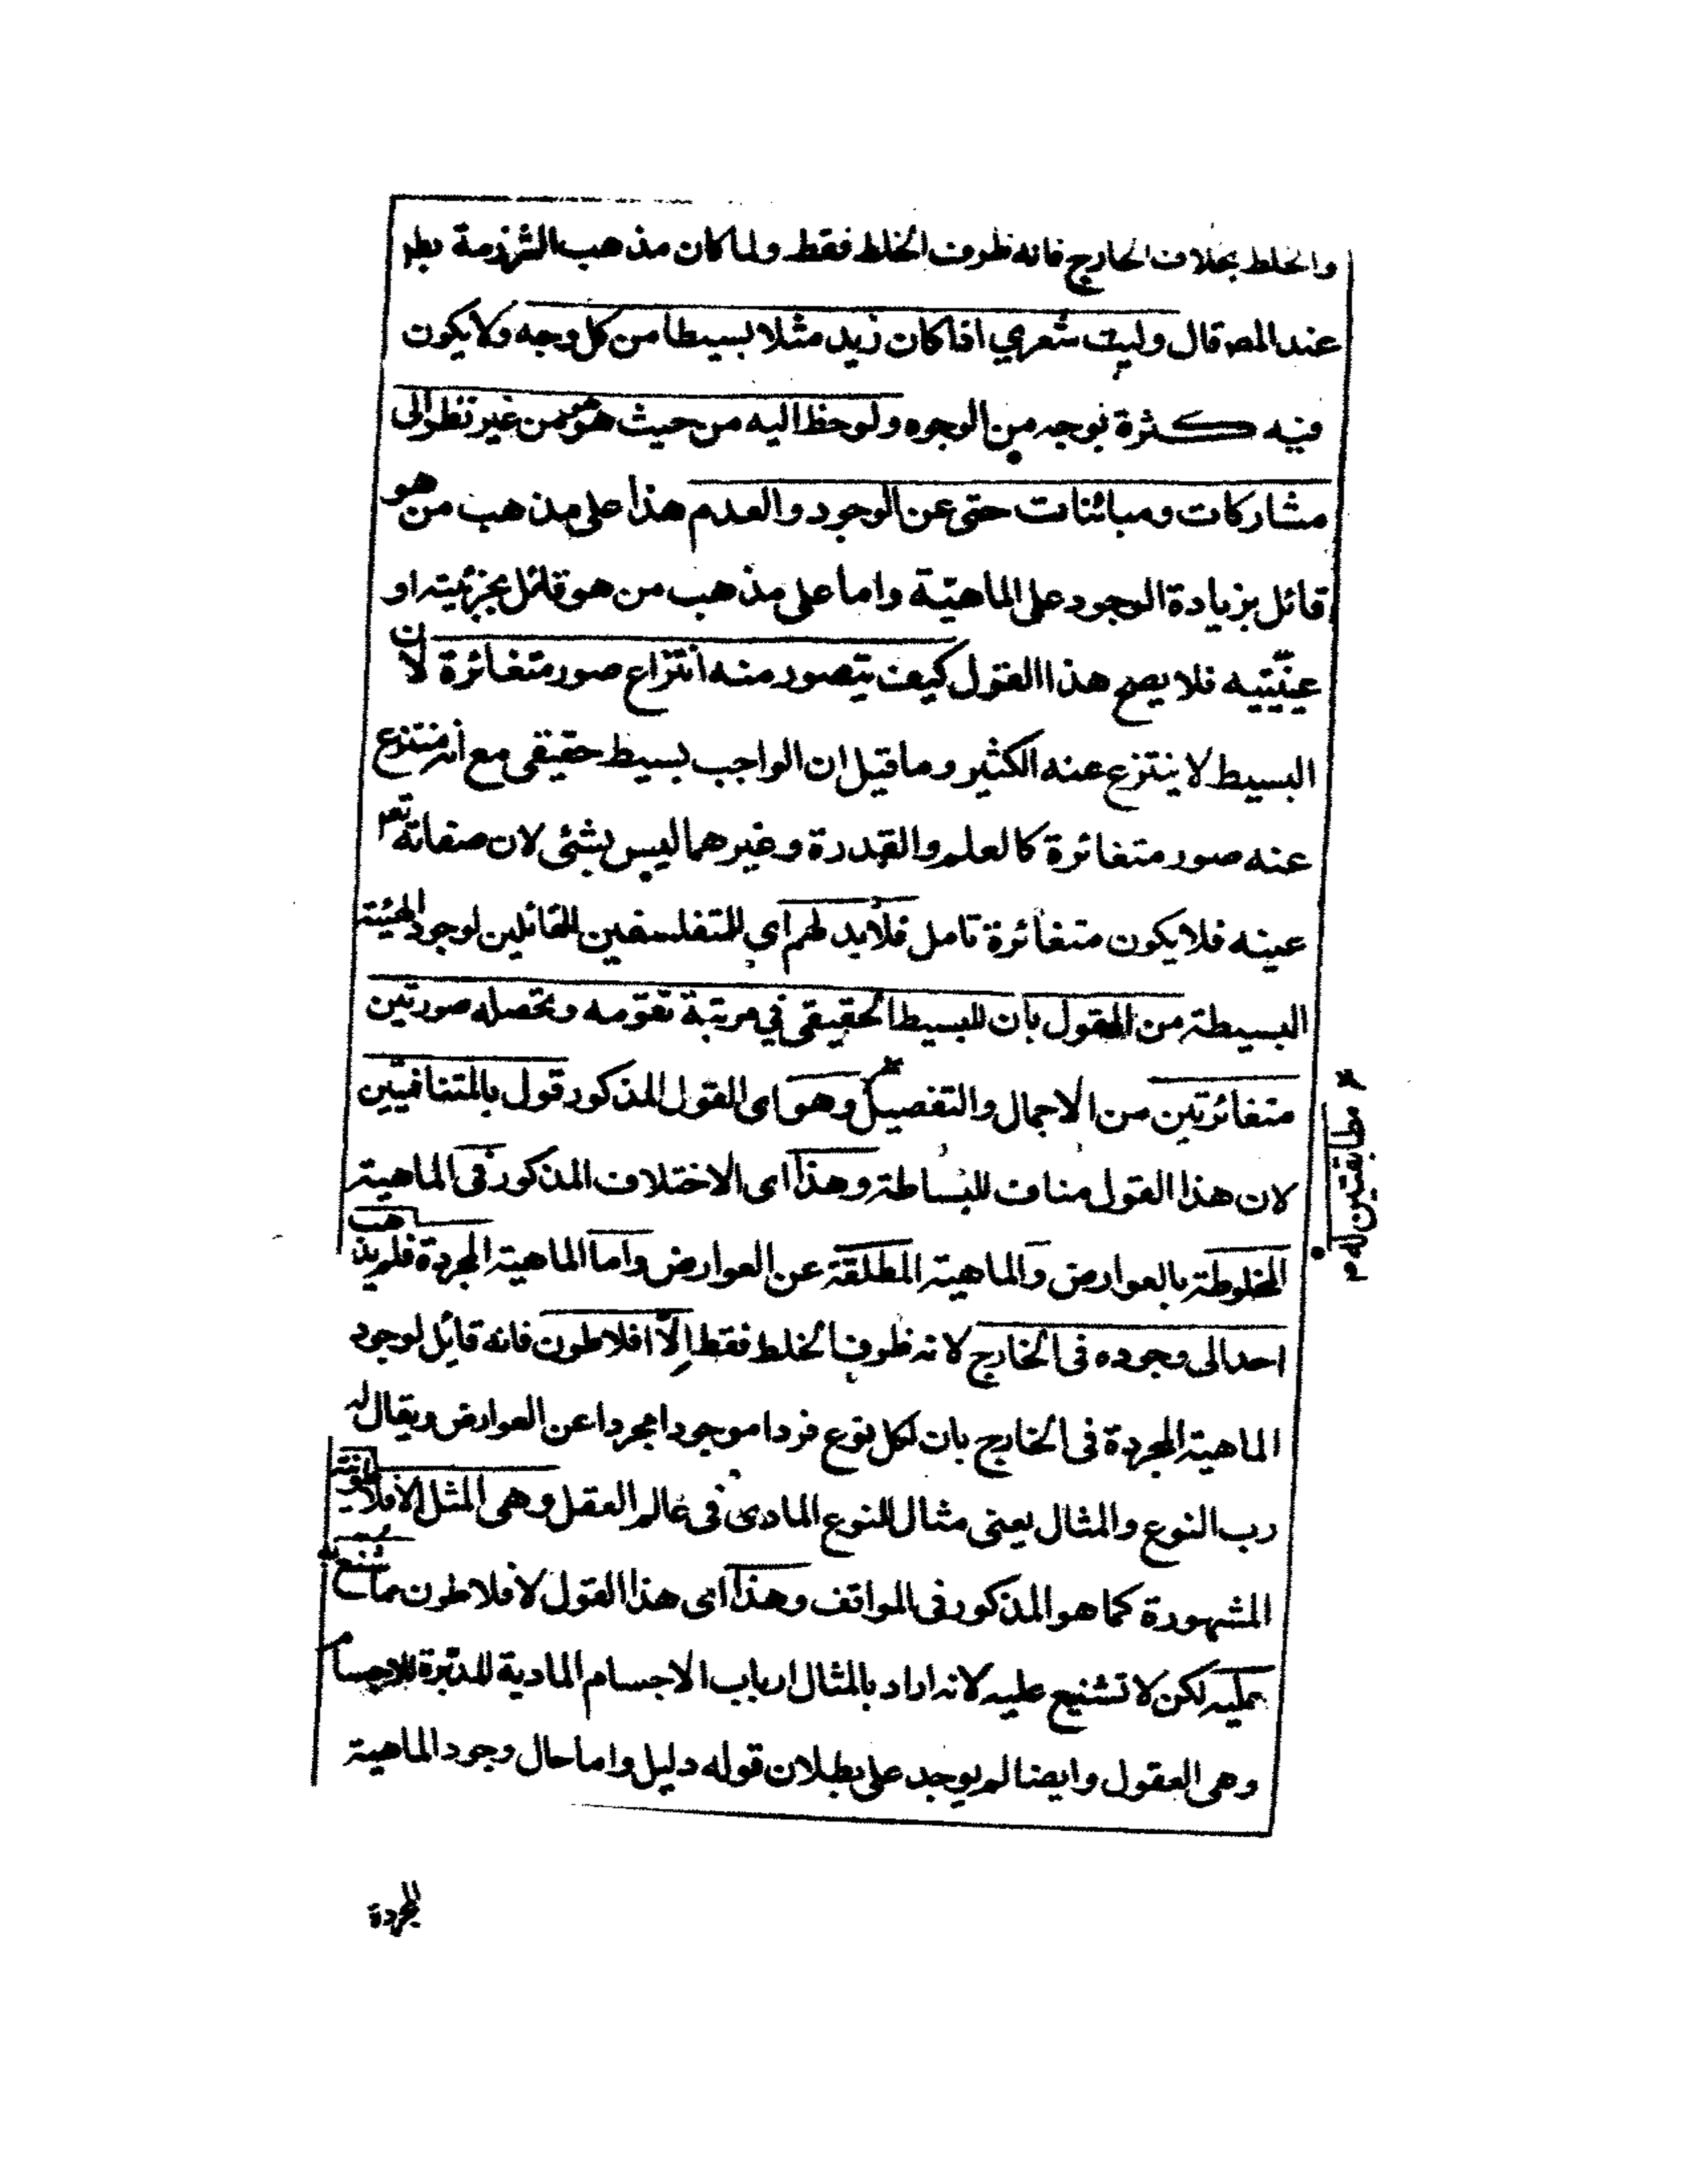 والخلط بخلاف الخارج فانه ظرف الخلط فقط ولما كان مذهب الشرذمة بطم
عند المص قال وليت شعري اذا كان زيد مثلا بسيطا من كل وجه ولا يكون
فيه كثرة بوجه من الوجوه ولوحظ اليه من حيث هو هو من غير نظر الى
مشاركات ومبائنات حتى عن الوجود والعدم هذا على مذهب من هو
قائل بزيادة الوجود على الماهيّة واما على مذهب من هو قائل بجزئيته او
عينّيتيه فلا يصح هذا القول كيف يتصور منه انتزاع صور متغائرة لان
البسيط لا ينتزع عنه الكثير وما قيل ان الواجب بسيط حقيقى مع انه منتزع
عنه صور متغائرة كالعلم والقدرة وغيرهما ليس بشئى لان صفاته تعم
عينه فلا يكون متغائرة تامل فلابد لهم اى للمتفلسفين القائلين لوجود الهيئة
البسيطة من القول بان للبسيط الحقيقى في مرتبة تقومه وتحصله صورتين
متغائرتين من الاجمال والتفصيل وهو اى القول المذكور قول بالمتنافيين
لان هذا القول مناف للبساطة وهذا اى الاختلاف المذكور فى الماهية
المخلوطة بالعوارض والماهية المطلقة عن العوارض واما الماهية المجردة فلم يذهب
احد الى وجوده فى الخارج لانه ظرف الخلط فقط الّا افلاطون فانه قايل لوجود
الماهية المجردة فى الخارج بان لكل نوع فردا موجودا مجردا عن العوارض ويقال له
رب النوع والمثال يعنى مثال للنوع المادى فى عالم العقل وهى المثل الافلاطونية
المشهورة كما هو المذكور فى المواقف وهذا اى هذا القول لافلاطون مما شنع به
عليه لكن لا تشنيع عليه لانه اراد بالمثال ارباب الاجسام المادية المدبّرة للاجسام
وهى العقول وايضا لم يوجد على بطلان قوله دليل واما حال وجود الماهية
المجردة
مطابقتين له م